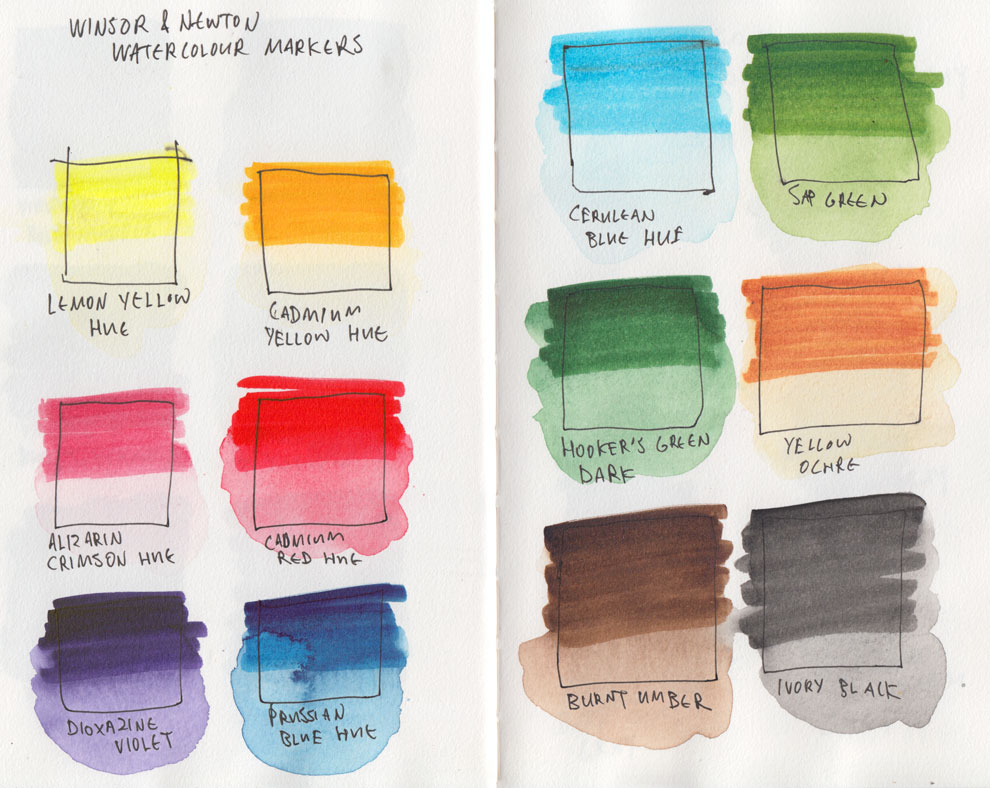 WINSOR & NEWTON
WATERCOLOUR MARKERS
LEMON YELLOW
HUE
CADMIUM
YELLOW HUE
ALIZARIN
CRIMSON HUE
CADMIUM
RED HUE
DIOXAZINE
VIOLET
PRUSSIAN
BLUE HUE
CERULEAN
BLUE HUE
SAP GREEN
HOOKER'S GREEN
DARK
YELLOW
OCHRE
BURNT UMBER
IVORY BLACK